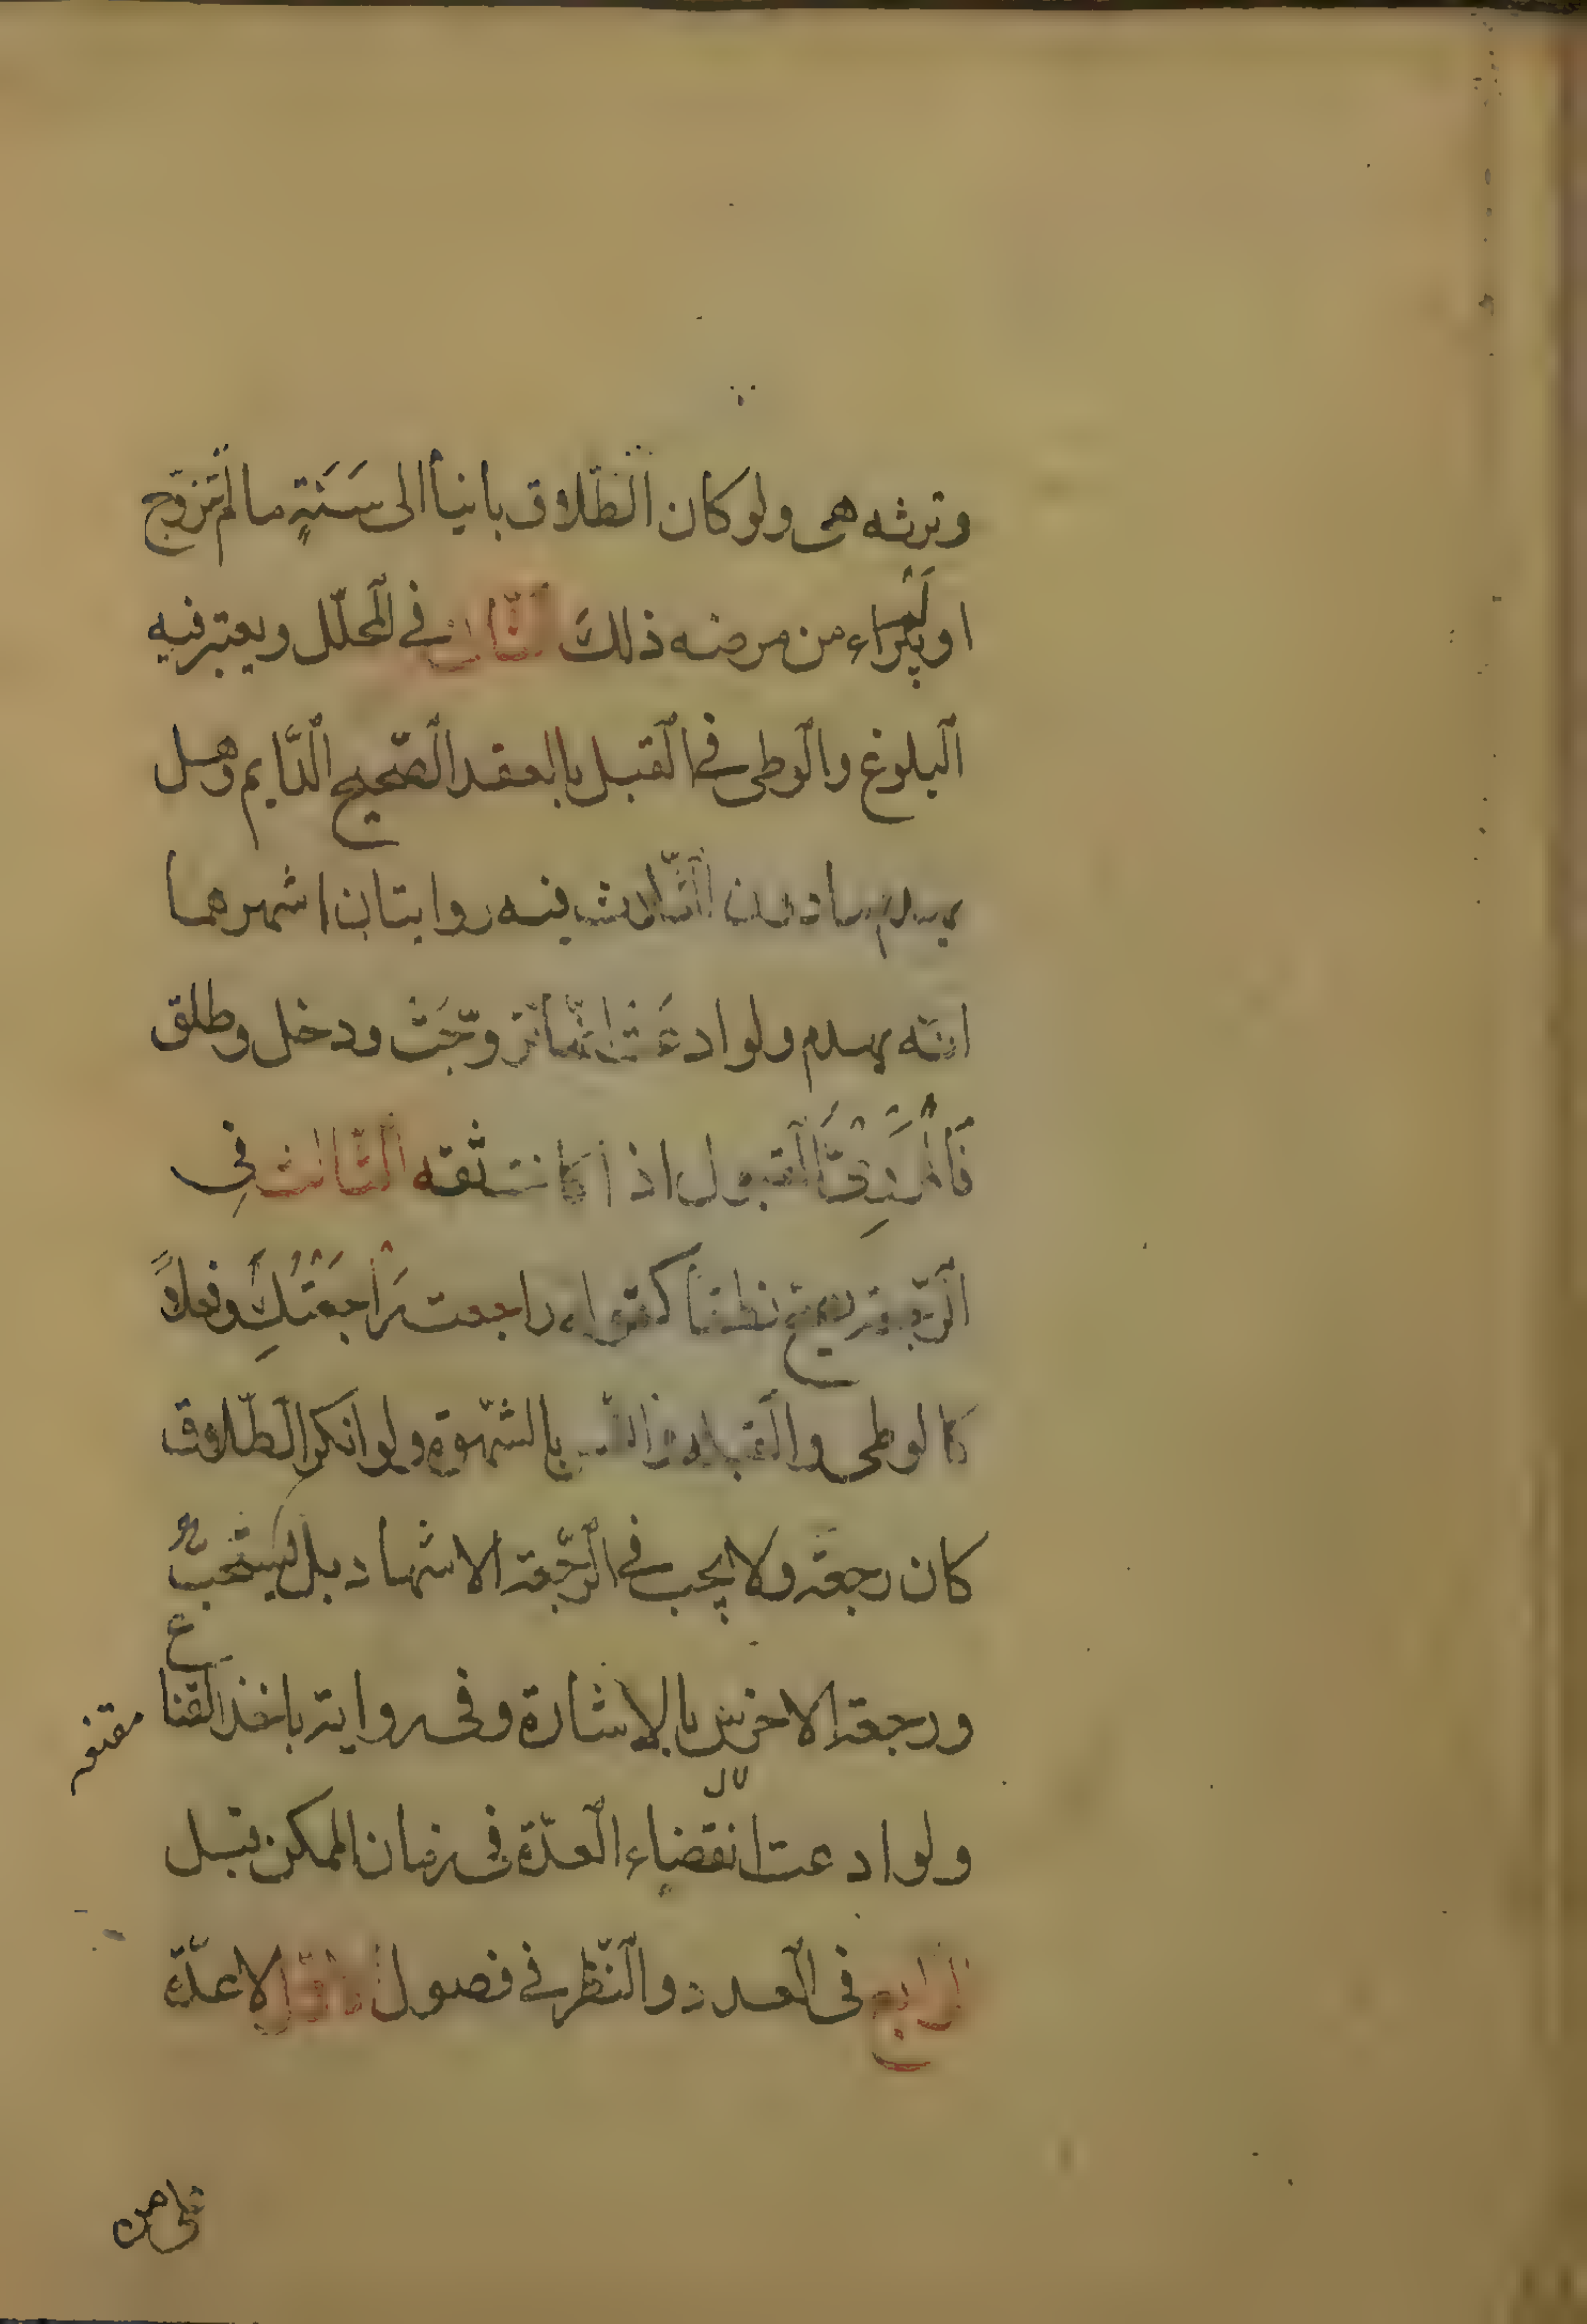 وترثه هى ولو كان الطّلاق بانياً الى سَنَةٍ ما لم تتزوّج
او يبراء من مرضه ذلك الثّانى في المحلّل ويعتبر فيه
البلوغ والوطى في القبل بالعقد الصّحيح الدّايم وهل
يهدم مادون الثّلاث فيه روايتان اشهرهما
انّه يهدم ولو ادعَت انّها تزوّجَت ودخل وطلق
فَالمَروِىُّ القبول اذا كانت ثقه الثّالث فى
الرّجعة تصح نطقا كقوله راجعت رَاجَعْتُكِ وفعلاً
كالوطى والقبلة واللمس بالشّهوة ولو انكر الطّلاق
كان رجعة ولا يجب في الرّجعة الاشهاد بل يستحبّ
ورجعة الاخرس بالاشارة وفى رواية باخذ القناع
مقنعه
ولو ادعت انقضاء العدّة فى زمان الممكن قبل
الرابع فى العدد والنّظر في فصول الاوّل لا عدّة
على من